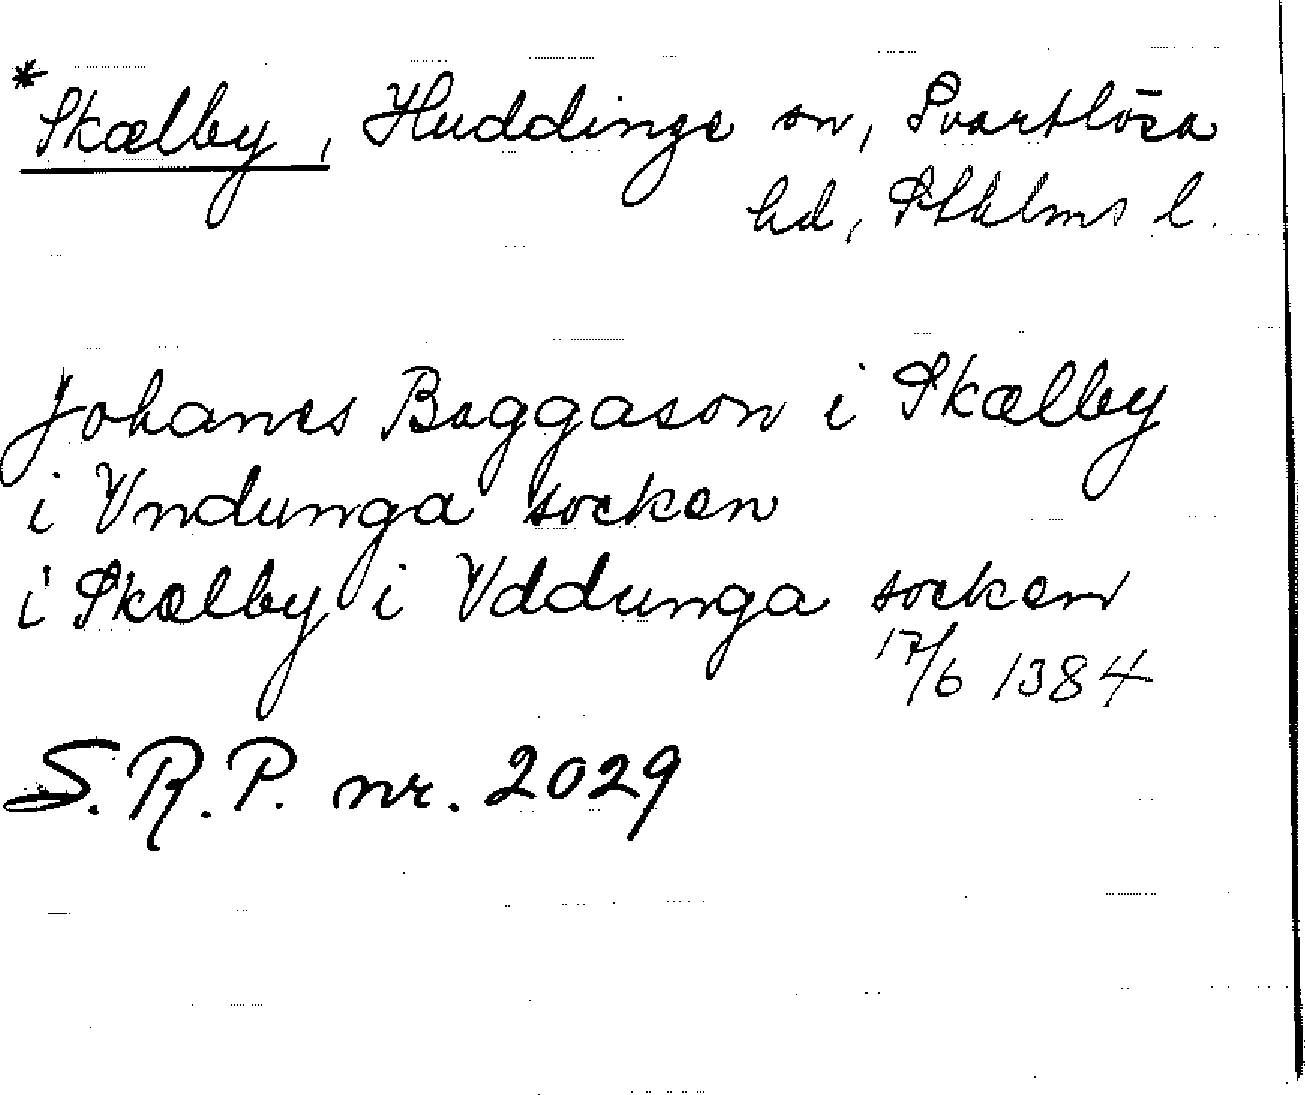 *Skælby, Huddinge sn, Svartlösa
hd, Sthlms l.
Johanes Baggason i Skælby
i Vndunga socken
i Skælby i Vddunga socken
17/6 1384
S.R.P. nr. 2029